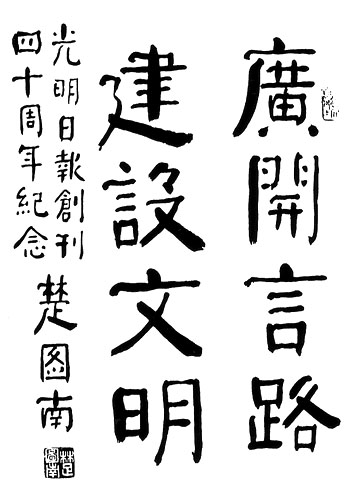 廣開言路
建設文明
光明日報創刊
四十周年紀念
楚图南